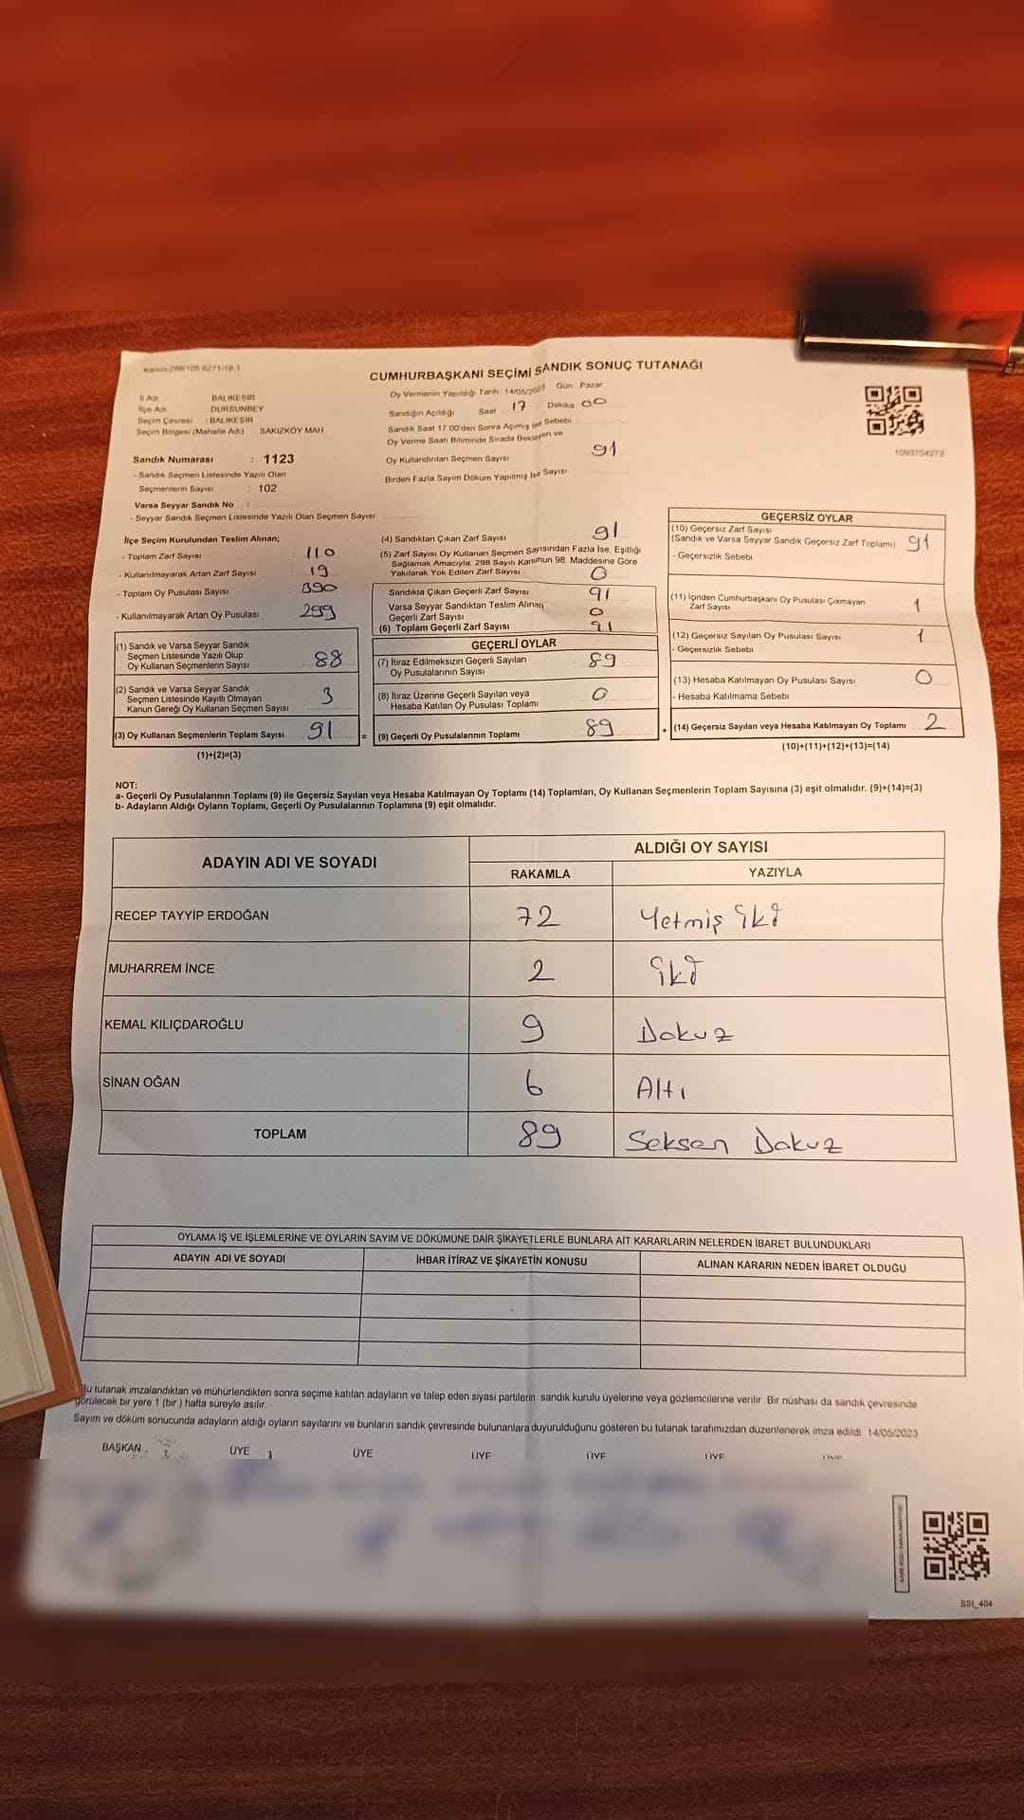 Kanun:298/105 6271/18.1
CUMHURBAŞKANI SEÇİMİ SANDIK SONUÇ TUTANAĞI
İl Adı BALIKESİR
İlçe Adı DURSUNBEY
Seçim Çevresi : BALIKESİR
Seçim Bölgesi (Mahalle Adı) SAKIZKÖY MAH
Sandık Numarası : 1123
- Sandık Seçmen Listesinde Yazılı Olan
Seçmenlerin Sayısı : 102
Varsa Seyyar Sandık No :
- Seyyar Sandık Seçmen Listesinde Yazılı Olan Seçmen Sayısı
Oy Vermenin Yapıldığı Tarih 14/05/2023 Gün Pazar
Sandığın Açıldığı Saat 17 Dakika 00
Sandık Saat 17.00'den Sonra Açılmış İse Sebebi
Oy Verme Saati Bitiminde Sırada Bekleyen ve
Oy Kullandırılan Seçmen Sayısı 91
Birden Fazla Sayım Döküm Yapılmış İse Sayısı
1093754273
İlçe Seçim Kurulundan Teslim Alınan;
- Toplam Zarf Sayısı 110
- Kullanılmayarak Artan Zarf Sayısı 19
- Toplam Oy Pusulası Sayısı 390
- Kullanılmayarak Artan Oy Pusulası 299
(1) Sandık ve Varsa Seyyar Sandık
Seçmen Listesinde Yazılı Olup
Oy Kullanan Seçmenlerin Sayısı 88
(2) Sandık ve Varsa Seyyar Sandık
Seçmen Listesinde Kayıtlı Olmayan
Kanun Gereği Oy Kullanan Seçmen Sayısı 3
(3) Oy Kullanan Seçmenlerin Toplam Sayısı 91
(1)+(2)=(3)
(4) Sandıktan Çıkan Zarf Sayısı 91
(5) Zarf Sayısı Oy Kullanan Seçmen Sayısından Fazla İse, Eşitliği
Sağlamak Amacıyla, 298 Sayılı Kanunun 98. Maddesine Göre
Yakılarak Yok Edilen Zarf Sayısı 0
Sandıkta Çıkan Geçerli Zarf Sayısı 91
Varsa Seyyar Sandıktan Teslim Alınan
Geçerli Zarf Sayısı 0
(6) Toplam Geçerli Zarf Sayısı 91
GEÇERLİ OYLAR
(7) İtiraz Edilmeksizin Geçerli Sayılan
Oy Pusulalarının Sayısı 89
(8) İtiraz Üzerine Geçerli Sayılan veya
Hesaba Katılan Oy Pusulası Toplamı 0
= (9) Geçerli Oy Pusulalarının Toplamı 89
GEÇERSİZ OYLAR
(10) Geçersiz Zarf Sayısı
(Sandık ve Varsa Seyyar Sandık Geçersiz Zarf Toplamı) 91
- Geçersizlik Sebebi
(11) İçinden Cumhurbaşkanı Oy Pusulası Çıkmayan
Zarf Sayısı 1
(12) Geçersiz Sayılan Oy Pusulası Sayısı 1
- Geçersizlik Sebebi
(13) Hesaba Katılmayan Oy Pusulası Sayısı 0
- Hesaba Katılmama Sebebi
+ (14) Geçersiz Sayılan veya Hesaba Katılmayan Oy Toplamı 2
(10)+(11)+(12)+(13)=(14)
NOT:
a- Geçerli Oy Pusulalarının Toplamı (9) ile Geçersiz Sayılan veya Hesaba Katılmayan Oy Toplamı (14) Toplamları, Oy Kullanan Seçmenlerin Toplam Sayısına (3) eşit olmalıdır. (9)+(14)=(3)
b- Adayların Aldığı Oyların Toplamı, Geçerli Oy Pusulalarının Toplamına (9) eşit olmalıdır.
ADAYIN ADI VE SOYADI ALDIĞI OY SAYISI
RAKAMLA YAZIYLA
RECEP TAYYİP ERDOĞAN 72 Yetmiş iki
MUHARREM İNCE 2 iki
KEMAL KILIÇDAROĞLU 9 Dokuz
SİNAN OĞAN 6 Altı
TOPLAM 89 Seksen Dokuz
OYLAMA İŞ VE İŞLEMLERİNE VE OYLARIN SAYIM VE DÖKÜMÜNE DAİR ŞİKAYETLERLE BUNLARA AİT KARARLARIN NELERDEN İBARET BULUNDUKLARI
ADAYIN ADI VE SOYADI İHBAR İTİRAZ VE ŞİKAYETİN KONUSU ALINAN KARARIN NEDEN İBARET OLDUĞU
Bu tutanak imzalandıktan ve mühürlendikten sonra seçime katılan adayların ve talep eden siyasi partilerin sandık kurulu üyelerine veya gözlemcilerine verilir. Bir nüshası da sandık çevresinde
görülecek bir yere 1 (bir) hafta süreyle asılır.
Sayım ve döküm sonucunda adayların aldığı oyların sayılarını ve bunların sandık çevresinde bulunanlara duyurulduğunu gösteren bu tutanak tarafımızdan düzenlenerek imza edildi. 14/05/2023
BAŞKAN ÜYE ÜYE ÜYE ÜYE ÜYE ÜYE
SSI_404